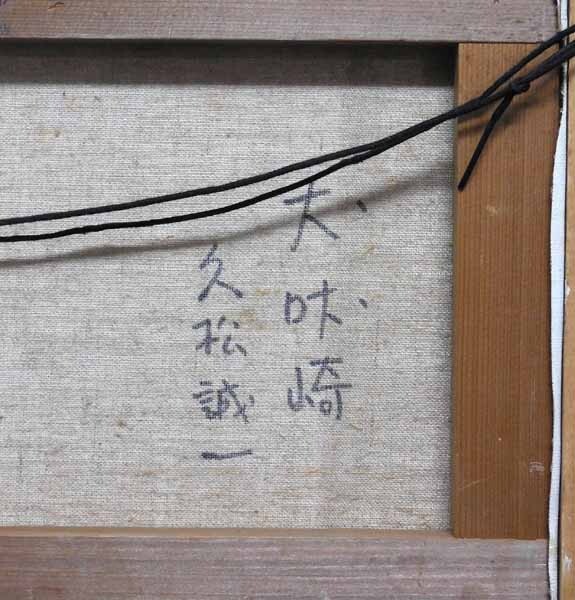 犬吠崎
久松誠一